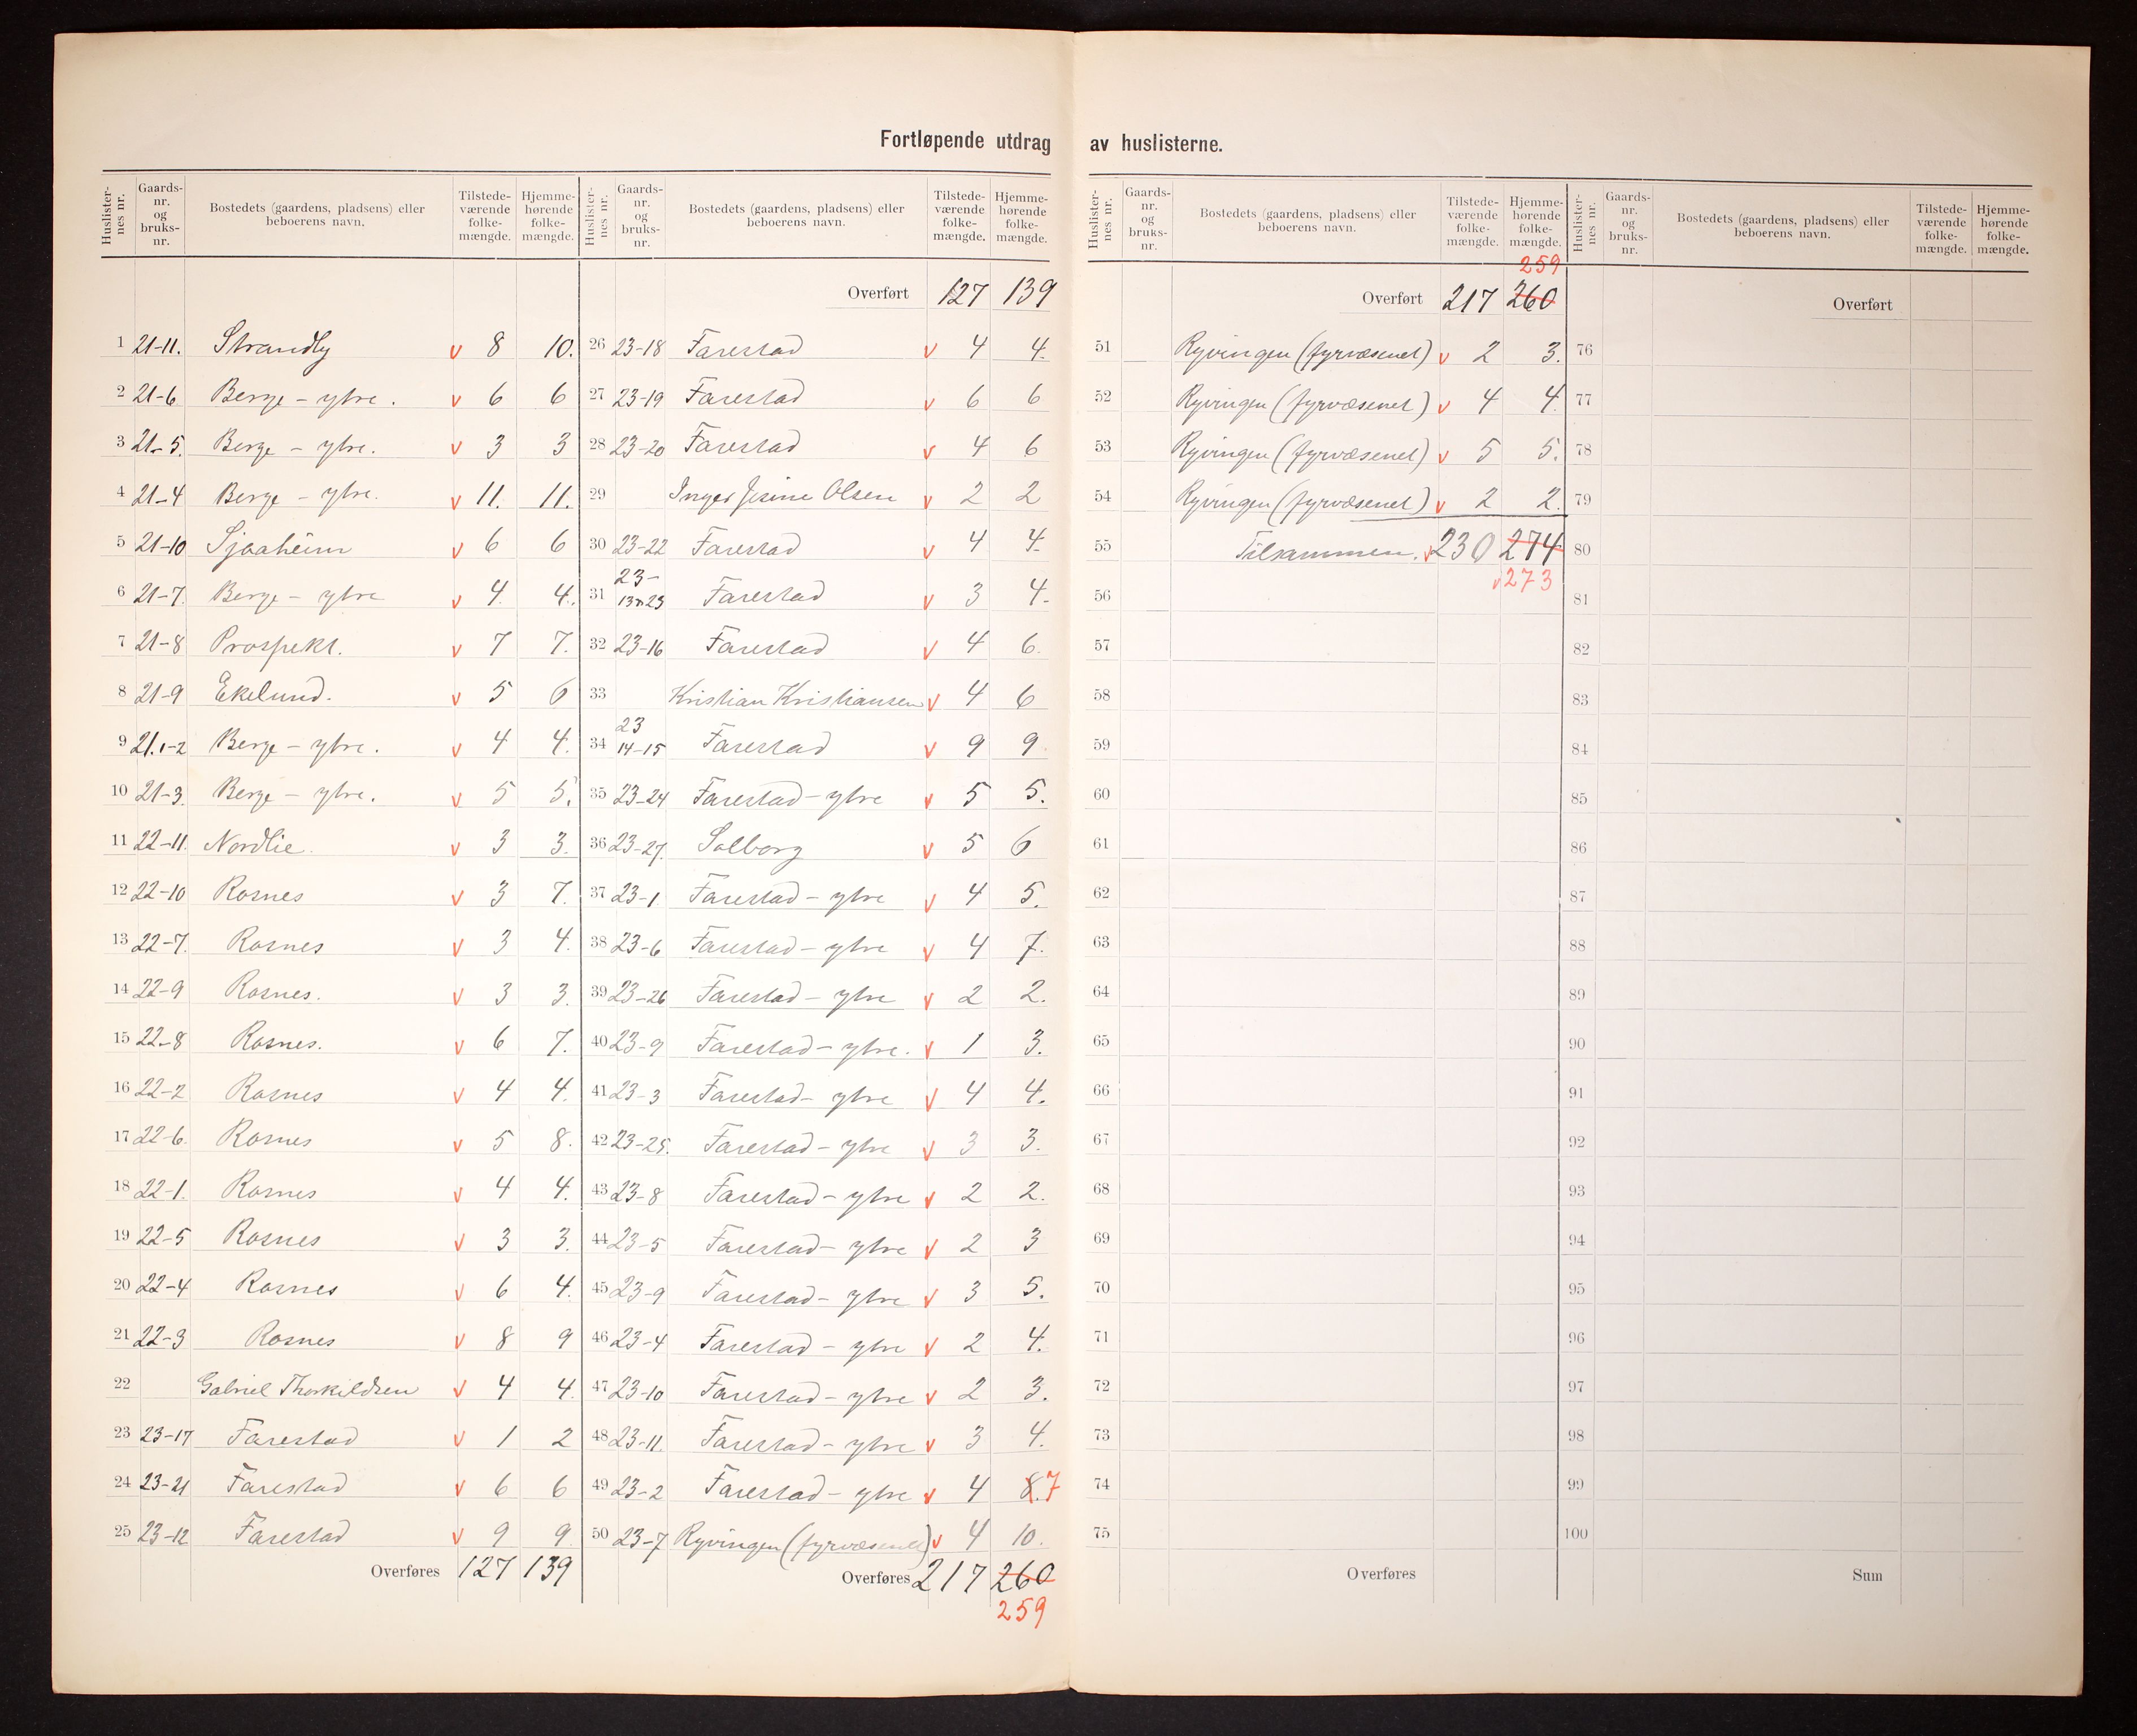 Fortløpende utdrag av huslisterne.
Huslisternes nr. | Gaards-nr. og bruks-nr. | Bostedets (gaardens, pladsens) eller beboerens navn. | Tilstedeværende folkemængde. | Hjemmehørende folkemængde.
1 21-11. Strandly v 8 10.
2 21-6 Berge - ytre. v 6 6
3 21-5. Berge - ytre. v 3 3
4 21-4 Berge - ytre. v 11. 11.
5 21-10 Sjaaheim v 6 6
6 21-7. Berge - ytre v 4. 4.
7 21-8 Prospekt. v 7 7.
8 21-9 Ekelund. v 5 6
9 21.1-2 Berge - ytre. v 4 4.
10 21-3. Berge - ytre. v 5 5.
11 22-11. Nordlie. v 3 3.
12 22-10 Rosnes v 3 7.
13 22-7. Rosnes v 3 4.
14 22-9 Rosnes. v 3 3.
15 22-8 Rosnes. v 6 7.
16 22-2 Rosnes v 4 4.
17 22-6. Rosnes v 5 8.
18 22-1. Rosnes v 4 4.
19 22-5 Rosnes v 3 3.
20 22-4 Rosnes v 6 4.
21 22-3 Rosnes v 8 9
22 Gabriel Thorkildsen v 4 4.
23 23-17 Farestad v 1 2
24 23-21 Farestad v 6 6
25 23-12 Farestad v 9 9
Overføres 127 139
Huslisternes nr. | Gaards-nr. og bruks-nr. | Bostedets (gaardens, pladsens) eller beboerens navn. | Tilstedeværende folkemængde. | Hjemmehørende folkemængde.
Overført 127 139
26 23-18 Farestad v 4 4.
27 23-19 Farestad v 6 6
28 23-20 Farestad v 4 6
29 Inger Jesine Olsen v 2 2
30 23-22 Farestad v 4 4.
31 23-13 23 Farestad v 3 4.
32 23-16 Farestad v 4 6.
33 Kristian Kristiansen v 4 6
34 23 14-15 Farestad v 9 9
35 23-24 Farestad - ytre v 5 5.
36 23-27. Solborg v 5 6
37 23-1. Farestad - ytre v 4 5.
38 23-6 Farestad - ytre v 4 7.
39 23-26 Farestad - ytre v 2 2.
40 23-9 Farestad - ytre. v 1 3.
41 23-3 Farestad - ytre v 4 4.
42 23-25. Farestad - ytre v 3 3.
43 23-8 Farestad - ytre v 2 2.
44 23-5 Farestad - ytre v 2 3
45 23-9 Farestad - ytre v 3 5.
46 23-4 Farestad - ytre v 2 4.
47 23-10 Farestad - ytre v 2 3.
48 23-11. Farestad - ytre v 3 4.
49 23-2 Farestad - ytre v 4 8. 7
50 23-7 Ryvingen (fyrvæsenet) v 4 10.
Overføres 217 260
259
Huslisternes nr. | Gaards-nr. og bruks-nr. | Bostedets (gaardens, pladsens) eller beboerens navn. | Tilstedeværende folkemængde. | Hjemmehørende folkemængde.
259
Overført 217 260
51 Ryvingen (fyrvæsenet) v 2 3.
52 Ryvingen (fyrvæsenet) v 4 4.
53 Ryvingen (fyrvæsenet) v 5 5.
54 Ryvingen (fyrvæsenet) v 2 2.
55 Tilsammen. v 230 274
v 273
56
57
58
59
60
61
62
63
64
65
66
67
68
69
70
71
72
73
74
75
Overføres
Huslisternes nr. | Gaards-nr. og bruks-nr. | Bostedets (gaardens, pladsens) eller beboerens navn. | Tilstedeværende folkemængde. | Hjemmehørende folkemængde.
Overført
76
77
78
79
80
81
82
83
84
85
86
87
88
89
90
91
92
93
94
95
96
97
98
99
100
Sum